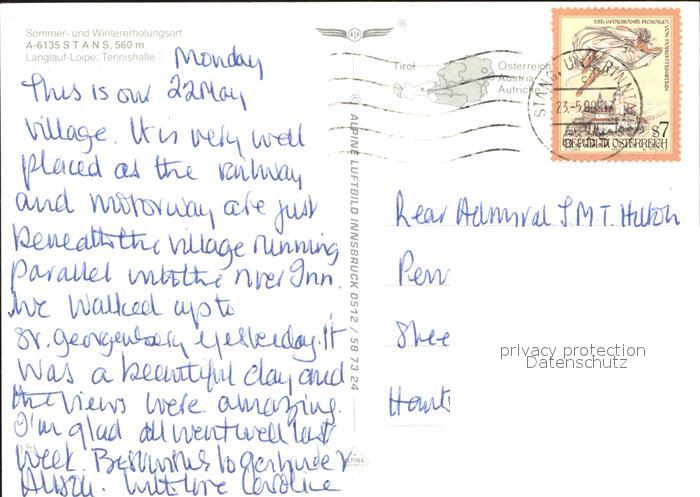 Sommer- und Wintererholungsort
A-6135 STANS, 560 m
Langlauf-Loipe; Tennishalle
Monday
22 May
This is our
village. It is very well
placed as the railway
and motorway are just
beneath the village running
parallel with the river Inn.
We walked up to
St. Georgenberg yesterday. It
was a beautiful day and
the views were amazing.
I'm glad all went well last
week. Best wishes to Gertrude &
Alison. With love Caroline
© ALPINE LUFTBILD INNSBRUCK 0512 / 58 73 24
ALPINA
Tirol
Österreich
Austria
Autriche
®
DIE GRAUSAME ROSALIA
VON FORCHTENSTEIN
S7
REPUBLIK ÖSTERREICH
23.-5.
Rear Admiral J.M.T. Hilton
Pen
Shee
Hants
privacy protection
Datenschutz